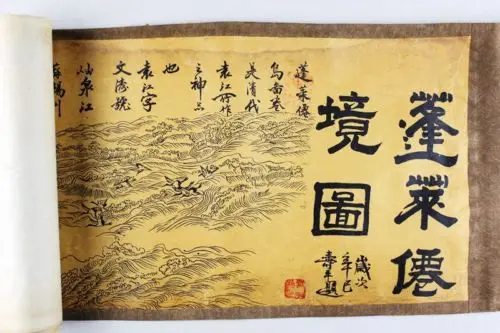 蓬萊僊
境圖
歲次
辛巳
壽平題
蓬萊僊
島畵卷
是清代
袁江所作
之神品
也
袁江字
文濤號
岫泉江
蘇揚州